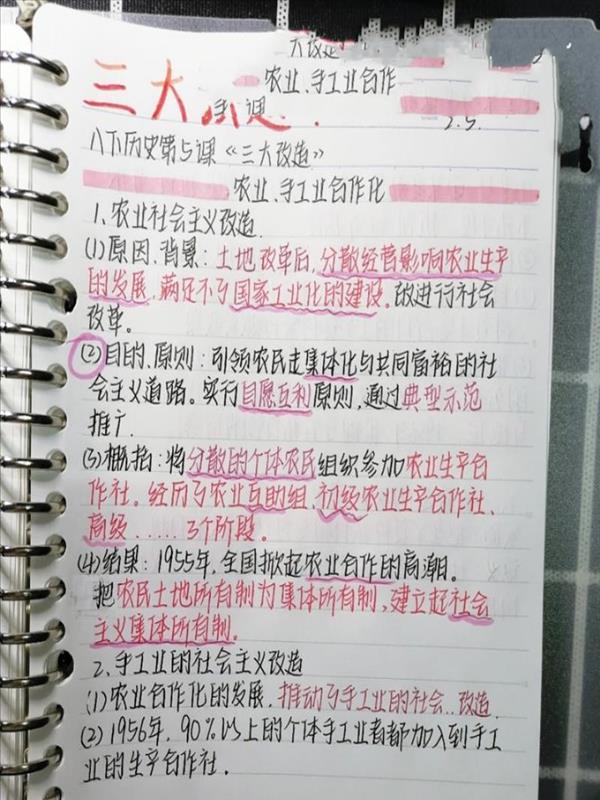 农业、手工业合作
三大
2.5.
八下历史第5课《三大改造》
农业、手工业合作化
1、农业社会主义改造.
(1)原因.背景：土地改革后,分散经营影响农业生产
的发展.满足不了国家工业化的建设.故进行社会
改革。
(2)目的、原则：引领农民走集体化与共同富裕的社
会主义道路。实行自愿互利原则,通过典型示范
推广.
(3)概括：将分散的个体农民组织参加农业生产合
作社。经历了农业互助组、初级农业生产合作社、
高级......3个阶段。
(4)结果：1955年,全国掀起农业合作的高潮。
把农民土地所有制为集体所有制,建立起社会
主义集体所有制.
2、手工业的社会主义改造
(1)农业合作化的发展.推动了手工业的社会..改造.
(2)1956年.90%以上的个体手工业者都加入到手工
业的生产合作社.